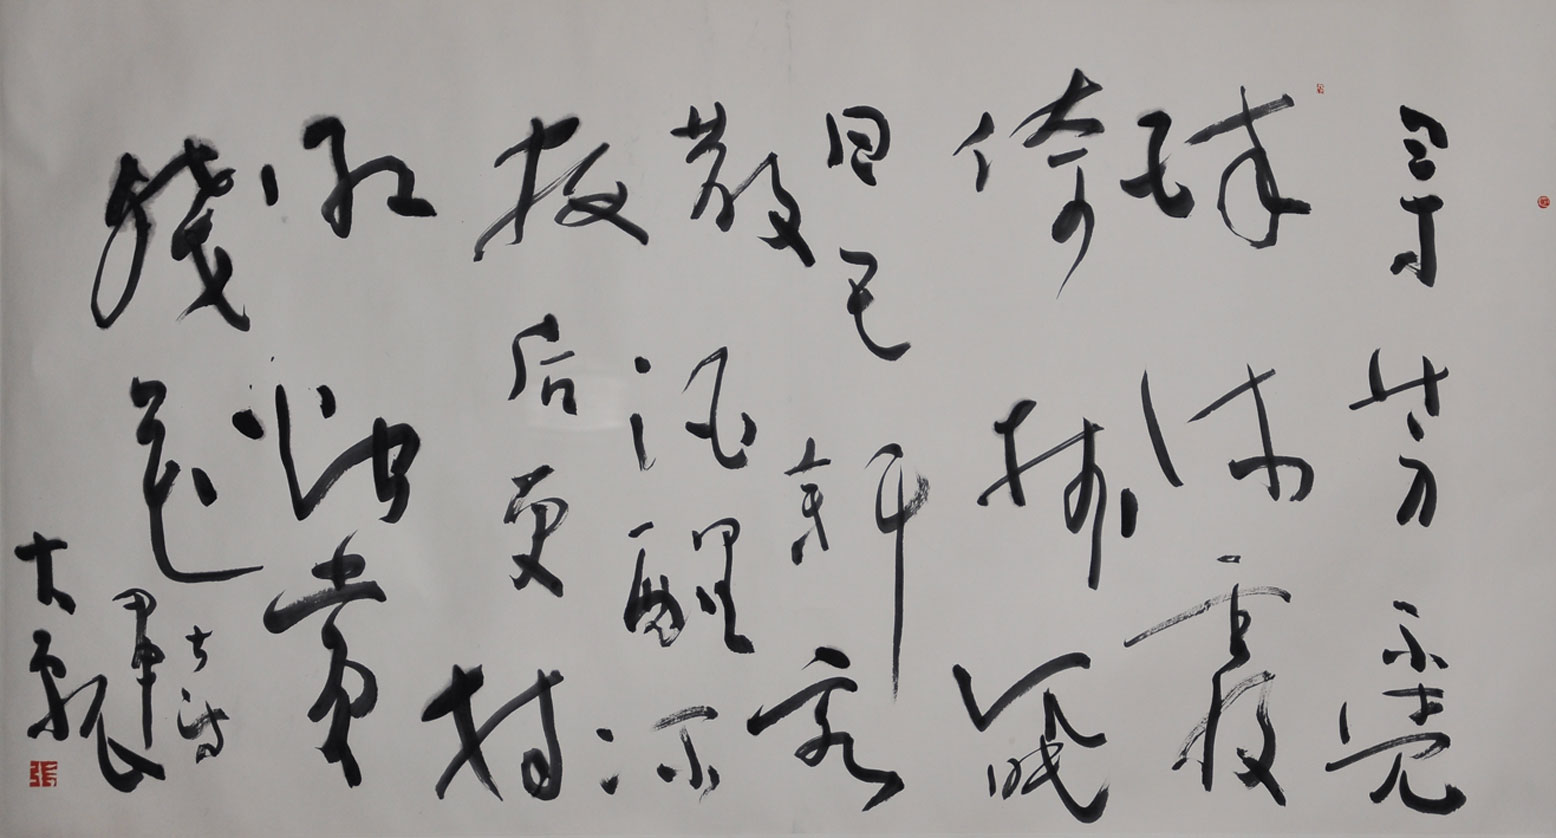 寻芳不觉
醉流霞
倚树沉眠
日已斜客
散酒醒深
夜后更持
红烛赏
残花
古诗
甲申